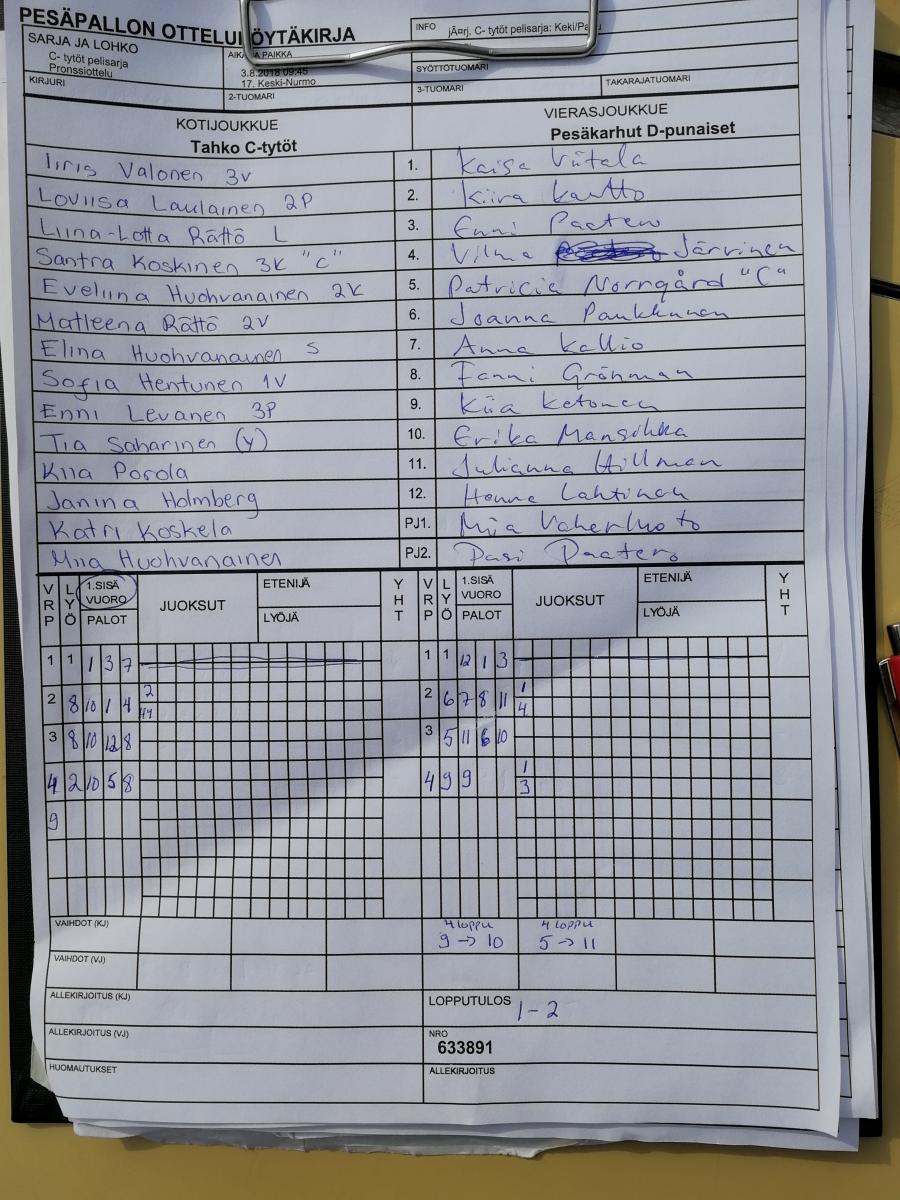 PESÄPALLON OTTELUPÖYTÄKIRJA
INFO jÃ¤rj. C- tytöt pelisarja: Keki/Pa
SARJA JA LOHKO
C- tytöt pelisarja
Pronssiottelu
AIKA JA PAIKKA
3.8.2018 09:45
17. Keski-Nurmo
SYÖTTÖTUOMARI
KIRJURI
2-TUOMARI
3-TUOMARI
TAKARAJATUOMARI
KOTIJOUKKUE
VIERASJOUKKUE
Tahko C-tytöt
Pesäkarhut D-punaiset
Iiris Valonen 3v 1. Kaisa Viitala
Loviisa Laulainen 2P 2. Kiira Kautto
Liina-Lotta Rättö L 3. Enni Paatero
Santra Koskinen 3K "C" 4. Vilma Järvinen
Eveliina Huohvanainen 2K 5. Patricia Norrgård "C"
Matleena Rättö 2V 6. Joanna Paukkunen
Elina Huohvanainen S 7. Anna Kallio
Sofia Hentunen 1V 8. Fanni Gröhman
Enni Levanen 3P 9. Kiia Ketonen
Tia Saharinen (Y) 10. Erika Mansikka
Kiia Porola 11. Julianna Hillman
Janina Holmberg 12. Henna Lahtinen
Katri Koskela PJ1. Mia Vaherluoto
Miia Huohvanainen PJ2. Pasi Paatero
VRP LYÖ 1.SISÄ VUORO PALOT JUOKSUT ETENIJÄ LYÖJÄ YHT
VRP LYÖ 1.SISÄ VUORO PALOT JUOKSUT ETENIJÄ LYÖJÄ YHT
1 1 1 3 7
1 1 12 1 3
2 8 10 1 4 2
2 6 7 8 11 1 4
3 8 10 12 8
3 5 11 6 10
4 2 10 5 8
4 9 9 1 3
9
VAIHDOT (KJ)
4 loppu 9 → 10
4 loppu 5 → 11
VAIHDOT (VJ)
ALLEKIRJOITUS (KJ)
LOPPUTULOS 1-2
ALLEKIRJOITUS (VJ)
NRO
633891
HUOMAUTUKSET
ALLEKIRJOITUS